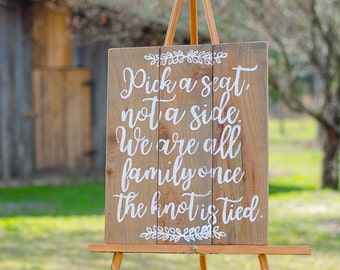 Pick a seat,
not a side.
We are all
family once
the knot is tied.